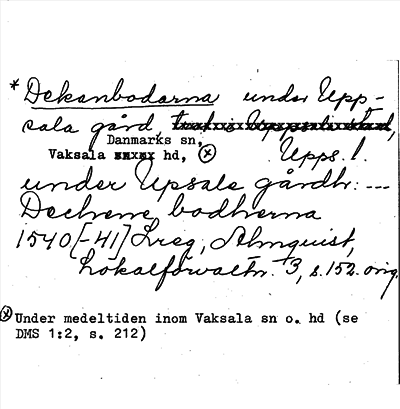 * Dekanbodarna under Upp-
sala gård, trakt i Uppsala stad,
Danmarks sn,
Vaksala hd, ⊗ Upps. l.
under Upsale gårdh: ---
Dechene bodherna
1540[-41] Lreg, Almquist,
Lokalförvaltn. 3, s. 152. orig.
⊗ Under medeltiden inom Vaksala sn o. hd (se
DMS 1:2, s. 212)